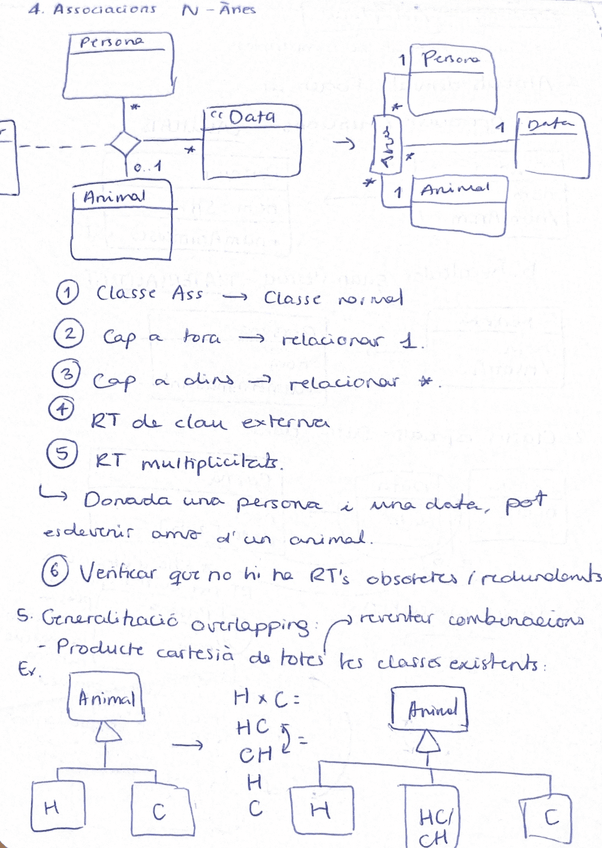 4. Associacions N-Àries
Persona
*
"Data
*
0..1
Animal
→
1
Persona
*
1
Data
*
*
1
Animal
① Classe Ass → Classe normal
② Cap a fora → relacionar 1.
③ Cap a dins → relacionar *.
④ RT de clau externa
⑤ RT multiplicitats.
↳ Donada una persona i una data, pot
esdevenir amo d'un animal.
⑥ Verificar que no hi ha RT's obsoletes i redundants
5. Generalització overlapping: → reventar combinacions
- Producte cartesià de totes les classes existents:
Ex.
Animal
H
C
→
H x C =
HC
CH
=
H
C
Animal
H
HC/
CH
C